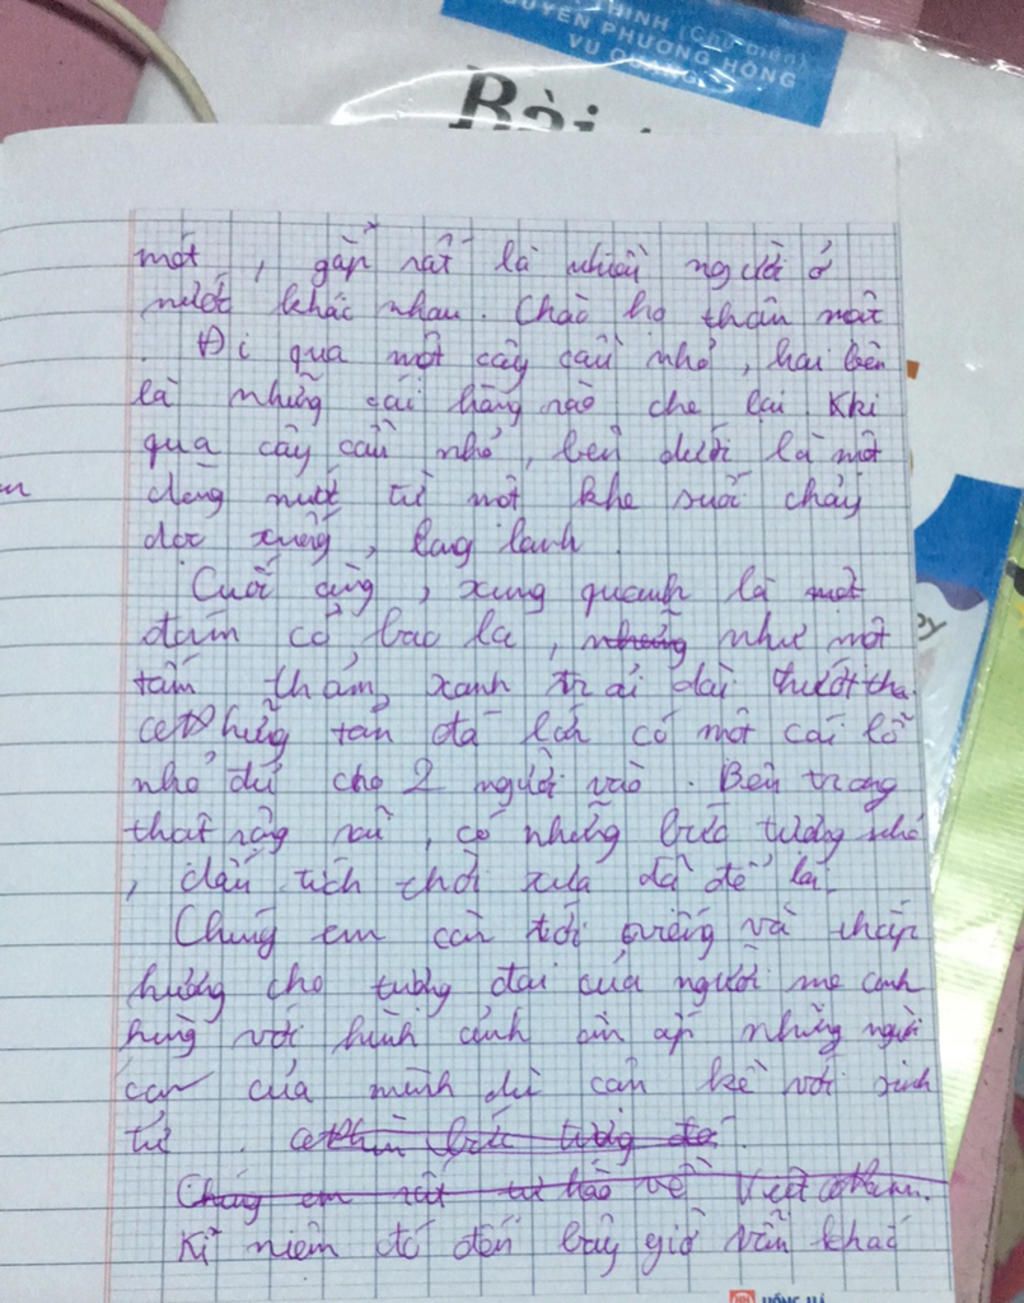 HINH (Chủ biên)
UYỄN PHƯƠNG HỒNG
VŨ QUANG
Bài
mớt , gặp rất là nhiều người ở
nước khác nhau. Chào họ thân mật
. Đi qua một cây cầu nhỏ, hai bên
là những cái hàng rào che lại. Khi
qua cây cầu nhỏ, bên dưới là một
dòng nước từ một khe suối chảy
dọc xuống, long lanh.
Cuối cùng, xung quanh là một
đám cỏ bao la, những như một
tấm thảm xanh trải dài thướt tha.
tản đá lớn có một cái lỗ
nhỏ đủ cho 2 người vào. Bên trong
thật rộng rãi, có những bức tượng nhỏ
, dấu tích thời xưa đã để lại.
Chúng em còn tới viếng và thắp
hương cho tượng đài của người mẹ anh
hùng với hình ảnh ôm ấp những người
con của mình dù cận kề với sinh
tử . bức tường đó.
Chúng em rất tự hào về Việt Nam.
Kỉ niệm đó đến bây giờ vẫn khắc
HỒNG HÀ